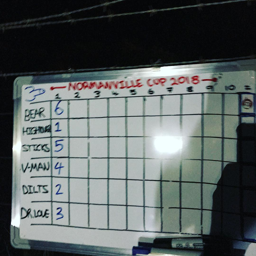 NORMANVILLE CUP 2018
1 2 3 4 5 6 7 8 9 10
BEAR 6
1
STICKS 5
V-MAN 4
DILTS 2
DR LOVE 3